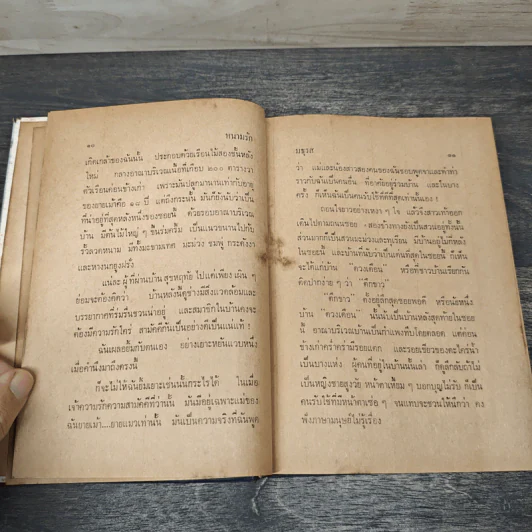 ๑๐ หนามรัก
เกิดเกล้าของฉันนั้น ประกอบด้วยเรือนไม้สองชั้นหลัง
ใหม่ กลางอาณาบริเวณเนื้อที่เกือบ ๒๐๐ ตารางวา
ตัวเรือนค่อนข้างเก่า เพราะมันปลูกมานานเท่ากับอายุ
ของยายเม้าคือ ๑๘ ปี แต่ถึงกระนั้น มันก็ยังนับว่าเป็น
ที่น่าอยู่ที่สุดหลังหนึ่งของซอยนี้ ด้วยรอบอาณาบริเวณ
บ้าน มีต้นไม้ใหญ่ ๆ ขึ้นร่มครึ้ม เป็นแนวขนานไปกับ
รั้วลวดหนาม มีทั้งมะขามเทศ มะม่วง ชมพู่ กระดังงา
และหางนกยูงฝรั่ง
แน่ละ ผู้ที่ผ่านบ้าน สุขหฤทัย ไปแต่เพียง เผิน ๆ
ย่อมจะต้องคิดว่า บ้านหลังนี้ดูช่างมีสิ่งแวดล้อมและ
บรรยากาศที่ร่มรื่นชวนน่าอยู่ และสมาชิกในบ้านคงจะ
ต้องมีความรักใคร่ สามัคคีกันเป็นอย่างดีเป็นแน่แท้ !
ฉันเผลอยิ้มกับตนเอง อย่างเยาะหยันแวบหนึ่ง
เมื่อคำนึงมาถึงตรงนี้
ก็จะไม่ให้ฉันยิ้มเยาะเช่นนั้นกระไรได้ ในเมื่อ
เจ้าความรักความสามัคคีที่ว่านั้น มันมีอยู่เฉพาะแม่ของ
ฉันยายเม้า....ยายแมวเท่านั้น มันเป็นความจริงที่ฉันพูด
มธุรส ๑๑
ว่า แม่และน้องสาวสองคนของฉันชอบพูดจาและทำท่า
ราวกับฉันเป็นคนอื่น ที่อาศัยอยู่ร่วมบ้าน และในบาง
ครั้ง ก็เห็นฉันเป็นคนรับใช้ที่ดีที่สุดเท่านั้นเอง !
ถอนใจยาวอย่างเหงา ๆ ใจ แล้วจึงสาวเท้าออก
เดินไปตามถนนซอย - สองข้างทางยังเป็นสวนอยู่ทั้งนั้น
สวนมากก็เป็นสวนมะม่วงและทุเรียน มีบ้านอยู่ไม่กี่หลัง
ในซอยนี้ และบ้านที่นับว่าเป็นต้นที่สุดในซอยนั้น ก็เห็น
จะได้แก่บ้าน “ดวงเดือน” หรือที่ชาวบ้านเรียกกัน
ติดปากง่าย ๆ ว่า “ตึกขาว”
“ตึกขาว” ตั้งอยู่ลึกสุดซอยพอดี หรืออีกหนึ่ง
บ้าน “ดวงเดือน” นั้นนี้เป็นบ้านหลังสุดท้ายในซอย
นี้ อาณาบริเวณบ้านเป็นกำแพงทึบโดยตลอด แต่ค่อน
ข้างเก่าคร่ำคร่ามีรอยแตก และรอยเขียวของตะไคร่น้ำ
เป็นบางแห่ง ผู้คนที่อยู่ในบ้านนั้นเล่า ก็ดูลึกลับถ้าไม่
เป็นหญิงชราสูงวัย หน้าตาเหี้ยม ๆ บอกบุญไม่รับ ก็เป็น
คนรับใช้ที่มีหน้าตาเซ่อ ๆ จนแทบจะชวนให้นึกว่า คง
ฟังภาษามนุษย์ไม่รู้เรื่อง